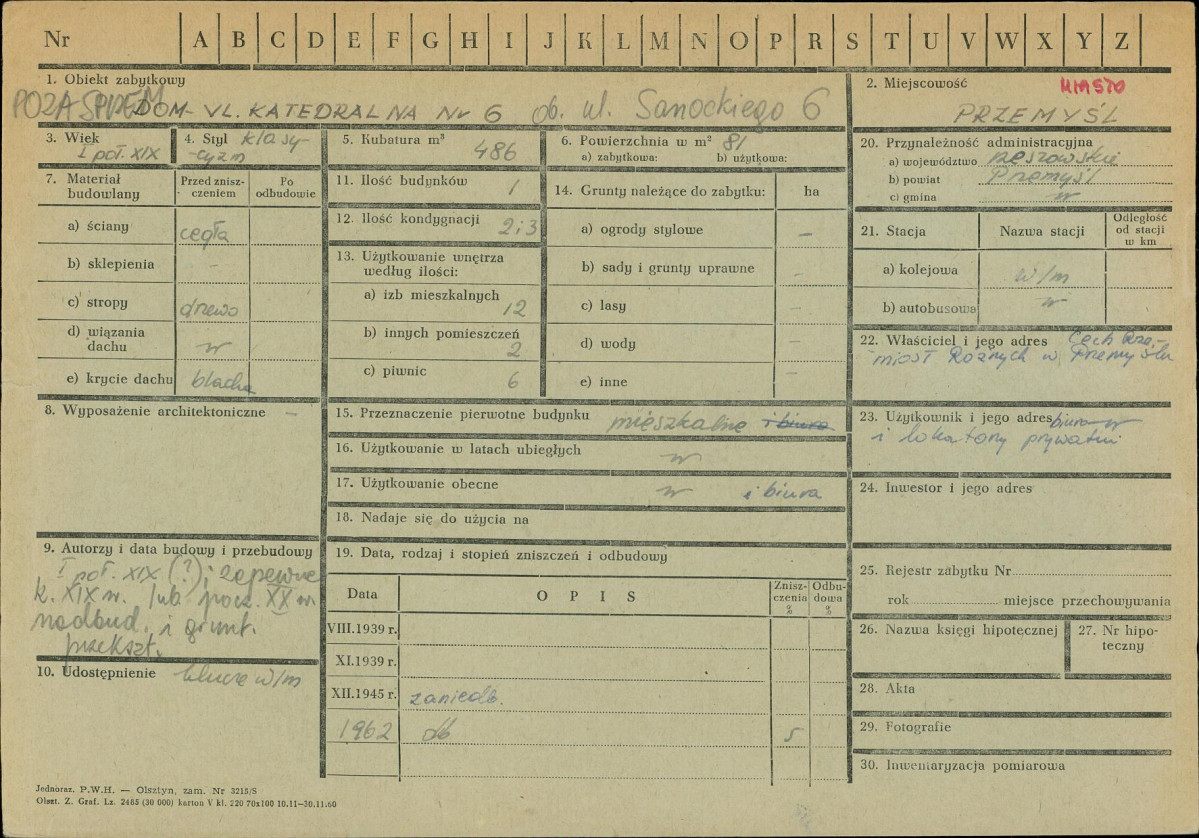 Nr A B C D E F G H I J K L M N O P R S T U V W X Y Z
1. Obiekt zabytkowy
POZA SPREM
DOM - UL. KATEDRALNA Nr 6 ob. ul. Sanockiego 6
2. Miejscowość MIASTO
PRZEMYŚL
3. Wiek
I poł. XIX
4. Styl klasy-
-cyzm
5. Kubatura m³
486
6. Powierzchnia w m² 81
a) zabytkowa: b) użytkowa:
7. Materiał budowlany
Przed znisz-
czeniem
Po
odbudowie
a) ściany cegła
b) sklepienia -
c) stropy drewo
d) wiązania
dachu "
e) krycie dachu blacha
8. Wyposażenie architektoniczne -
9. Autorzy i data budowy i przebudowy
I poł. XIX (?); zapewne
k. XIX w. lub pocz. XX w.
nadbud. i grunt.
przekszt.
10. Udostępnienie klucze w/m
11. Ilość budynków 1
12. Ilość kondygnacji 2i3
13. Użytkowanie wnętrza
według ilości:
a) izb mieszkalnych
12
b) innych pomieszczeń
2
c) piwnic
6
14. Grunty należące do zabytku: ha
a) ogrody stylowe -
b) sady i grunty uprawne -
c) lasy -
d) wody -
e) inne
15. Przeznaczenie pierwotne budynku mieszkalne i biura
16. Użytkowanie w latach ubiegłych "
17. Użytkowanie obecne " i biura
18. Nadaje się do użycia na
19. Data, rodzaj i stopień zniszczeń i odbudowy
Data OPIS Znisz-
czenia
% Odbu-
dowa
%
VIII.1939 r.
XI.1939 r.
XII.1945 r. zaniedb.
1962 db 5
20. Przynależność administracyjna
a) województwo rzeszowskie
b) powiat Przemyśl
c) gmina "
21. Stacja Nazwa stacji Odległość
od stacji
w km
a) kolejowa w/m
b) autobusowa "
22. Właściciel i jego adres Cech Rze-
miosł Różnych w Przemyślu
23. Użytkownik i jego adres biura "
i lokatorzy prywatni
24. Inwestor i jego adres
25. Rejestr zabytku Nr
rok miejsce przechowywania
26. Nazwa księgi hipotecznej
27. Nr hipo-
teczny
28. Akta
29. Fotografie
30. Inwentaryzacja pomiarowa
Jednoraz. P.W.H. — Olsztyn, zam. Nr 3215/S
Olszt. Z. Graf. Lz. 2485 (30 000) karton V kl. 220 70x100 10.11—30.11.60